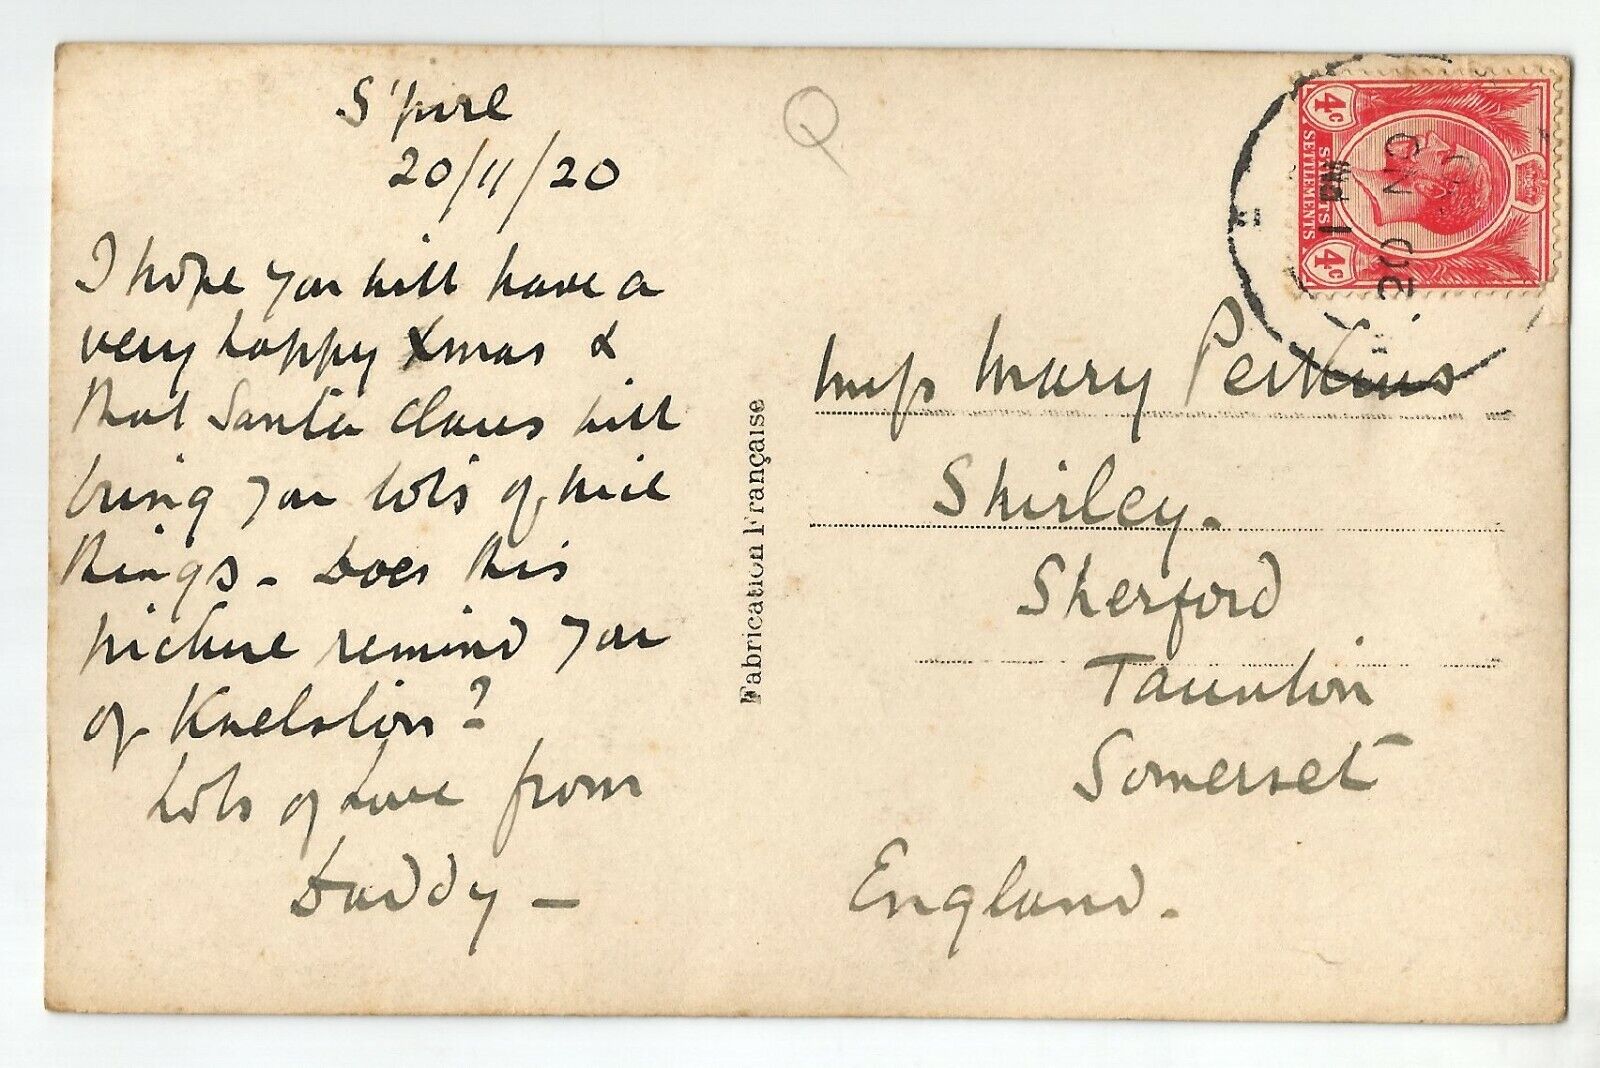 S'pore
20/11/20
I hope you will have a
very happy Xmas &
that Santa Claus will
bring you lots of nice
things - Does this
picture remind you
of Knelston?
Lots of Love from
Daddy -
Fabrication Française
4c
STRAITS
SETTLEMENTS
4c
1 PM
20 NO
Miss Mary Perkins
Shirley.
Sherford
Taunton
Somerset
England.